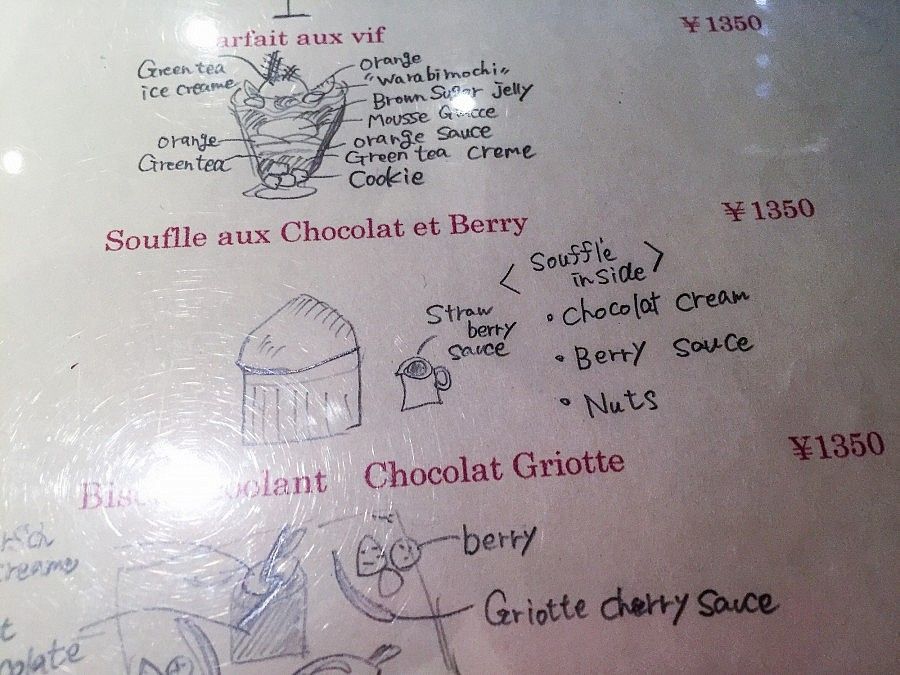 arfait aux vif ¥1350
Green tea
ice creame
orange
"warabimochi"
Brown Sugar Jelly
Mousse
orange sauce
orange
Green tea
Green tea creme
Cookie
Souflle aux Chocolat et Berry ¥1350
< Souffle
inside >
Straw
berry
sauce
• chocolat cream
• Berry sauce
• Nuts
Chocolat Griotte ¥1350
berry
Griotte cherry sauce